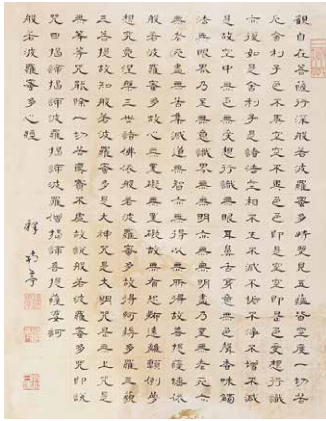 觀自在菩薩行深般若波羅蜜多時照見五蘊皆空度一切苦
厄舍利子色不異空空不異色色即是空空即是色受想行識
亦復如是舍利子是諸法空相不生不滅不垢不淨不增不減
是故空中無色無受想行識無眼耳鼻舌身意無色聲香味觸
法無眼界乃至無意識界無無明亦無無明盡乃至無老死亦
無老死盡無苦集滅道無智亦無得以無所得故菩提薩埵依
般若波羅蜜多故心無罣礙無罣礙故無有恐怖遠離顛倒夢
想究竟涅槃三世諸佛依般若波羅蜜多故得阿耨多羅三藐
三菩提故知般若波羅蜜多是大神咒是大明咒是無上咒是
無等等咒能除一切苦真實不虛故說般若波羅蜜多咒即說
咒曰揭諦揭諦波羅揭諦波羅僧揭諦菩提薩婆訶
般若波羅蜜多心經
釋南亭